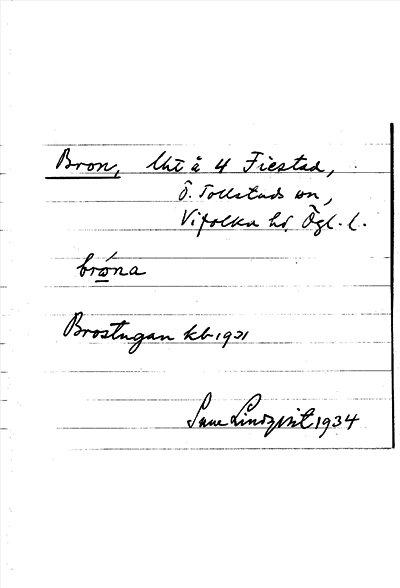 Bron, lht å 4 Fiestad,
Ö. Tollstads sn,
Vifolka hd, Ögl. l.
bro̲´na
Brostugan kb 1921
Sune Lindqvist 1934